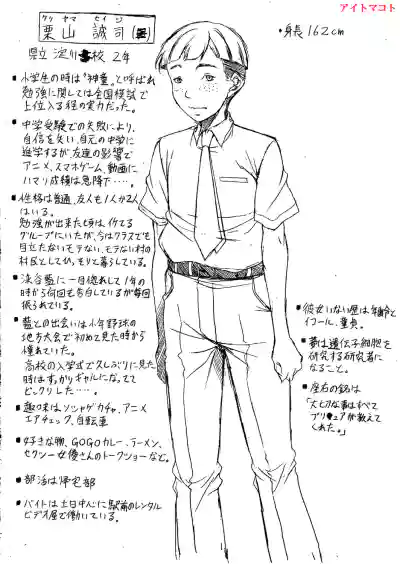 アイトマコト
クリ ヤマ セイジ
栗山 誠司
・身長162cm
県立 淀川 高校 2年
■小学生の時は"神童"と呼ばれ
勉強に関しては全国模試で
上位入る程の実力だった。
■中学受験での失敗により、
自信を失い、地元の中学に
進学するが友達の影響で
アニメ、スマホゲーム、動画に
ハマり成績は急降下……。
■性格は普通、友人も1人か2人
はいる。
勉強が出来た頃は、イケてる
グループにいたが、今はクラスでも
目立たないモテない、モテない村の
村民としてひっそりと暮らしている。
■渋谷藍に一目惚れして1年の
時から何回も告白しているが毎回
振られている。
■藍との出会いは少年野球の
地方大会で初めて見た時から
憧れていた。
高校の入学式で久しぶりに見た
時はすっかりギャルになってて
ビックリした……。
■趣味はソシャゲガチャ、アニメ
エアチェック、自転車
■好きな物、GOGOカレー、ラーメン、
セクシー女優さんのトークショーなど。
■部活は帰宅部
■バイトは土日中心に駅前のレンタル
ビデオ屋で働いている。
■彼女いない歴は年齢と
イコール、童貞。
■夢は遺伝子細胞を
研究する研究者に
なること。
■座右の銘は
「大切な事はすべて
プリ●ュアが教えて
くれた。」